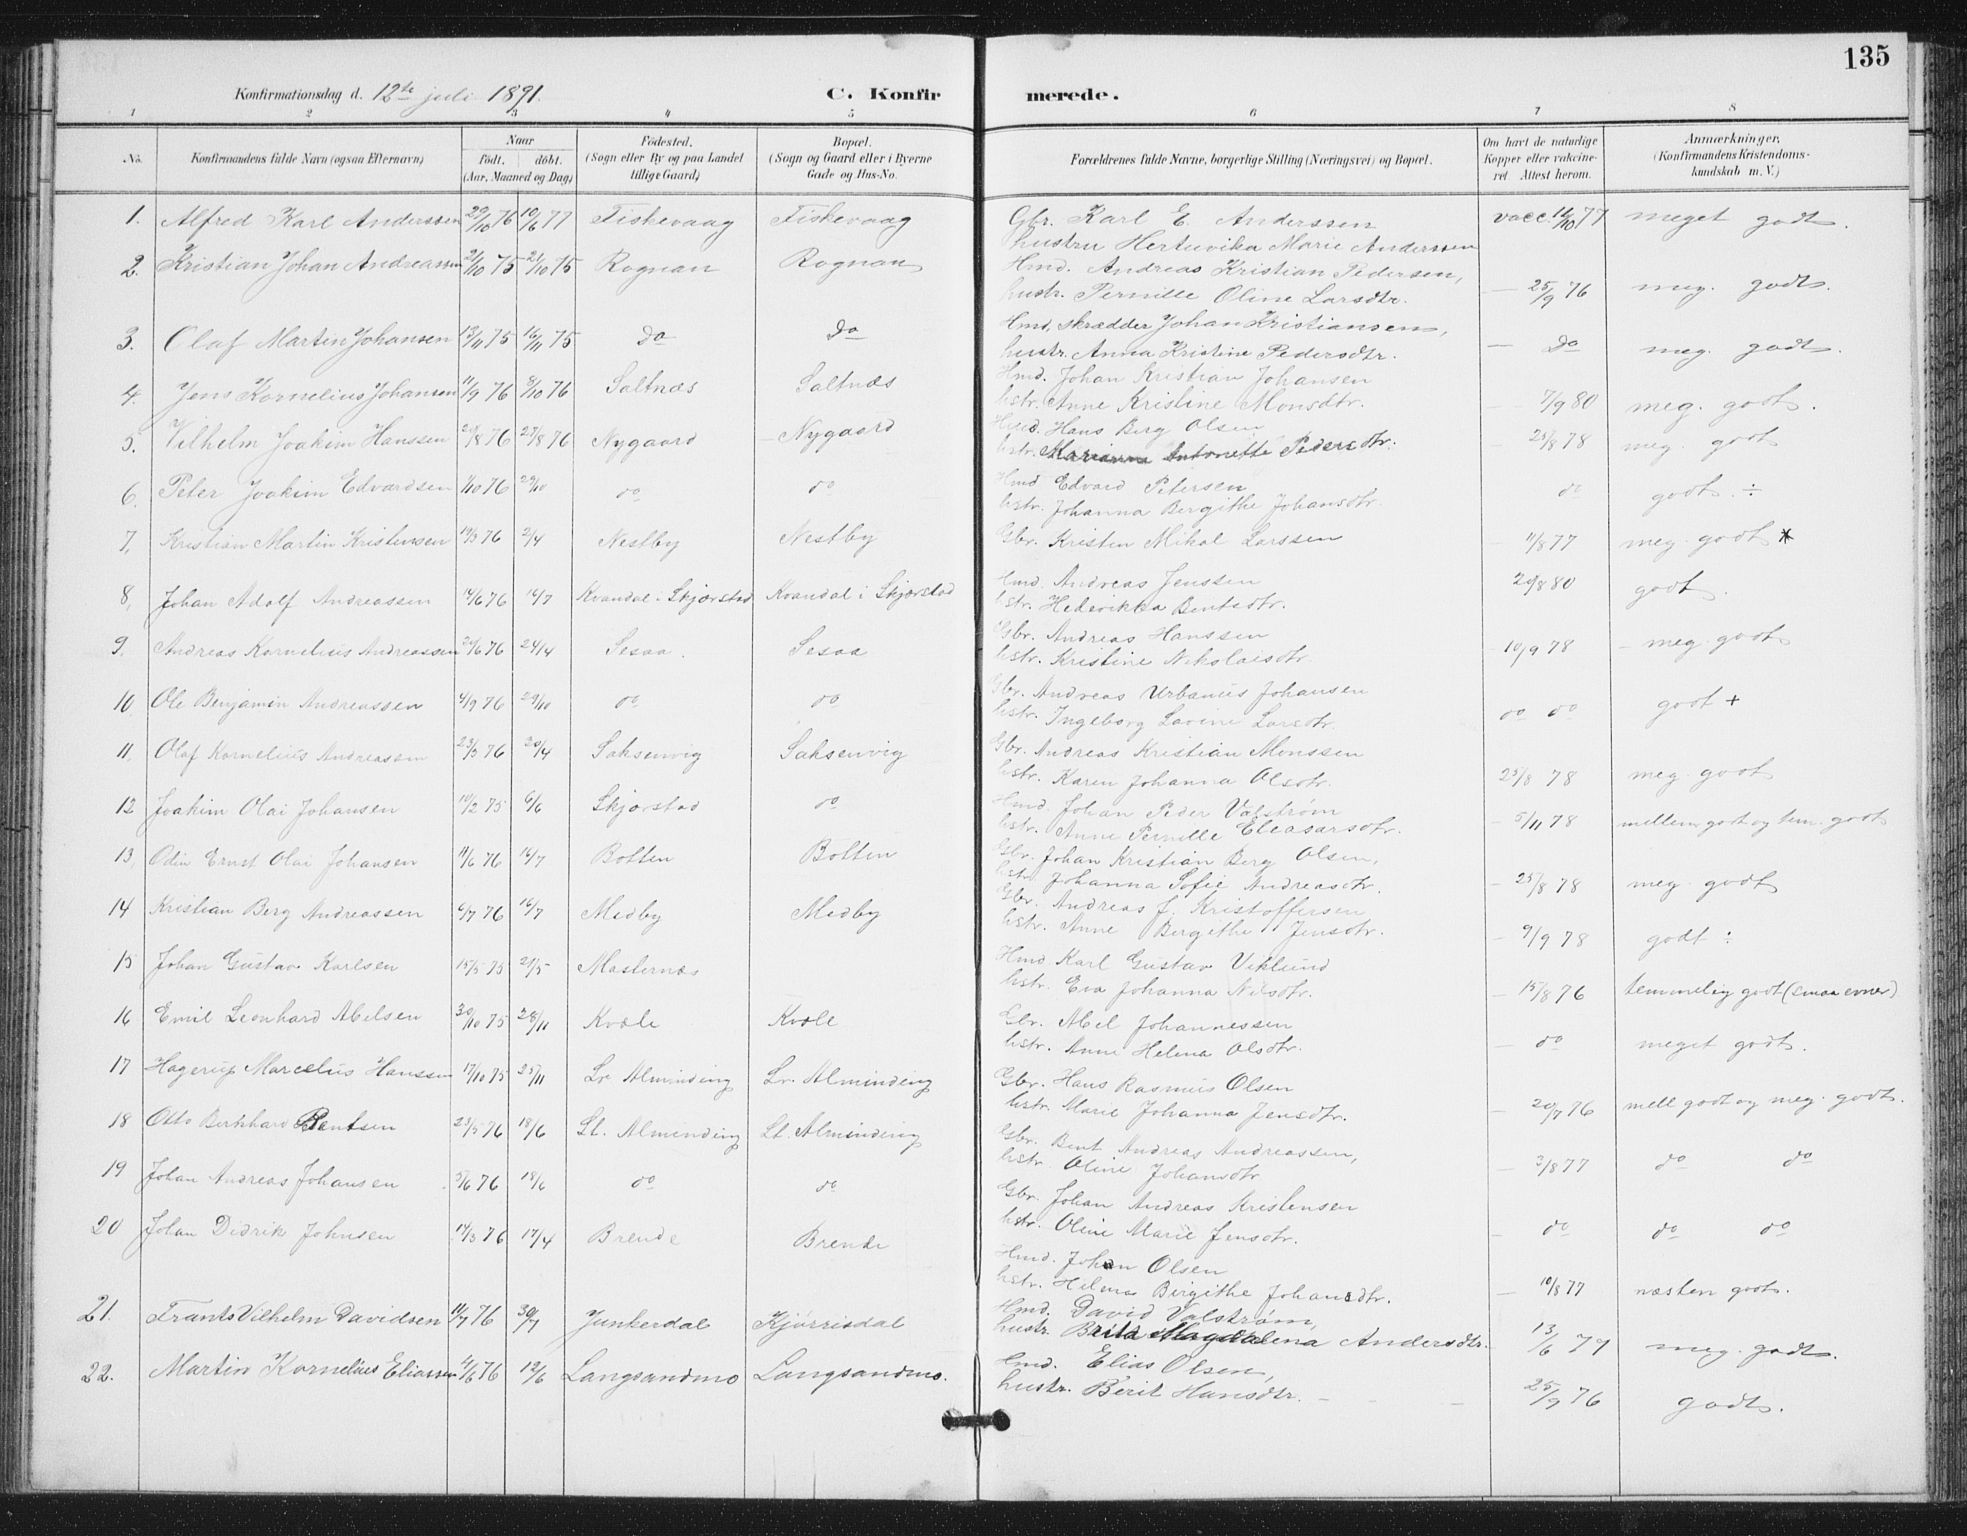 135
Konfirmationsdag d. 12te juli 1891. C. Konfirmerede.
1 2 3 4 5 6 7 8
No. Konfirmandens fulde Navn (ogsaa Efternavn) Naar født. døbt. (Aar, Maaned og Dag) Fødested. (Sogn eller By og paa Landet tillige Gaard) Bopæl. (Sogn og Gaard eller i Byerne Gade og Hus-No. Forældrenes fulde Navne, borgerlige Stilling (Næringsvei) og Bopæl. Om havt de naturlige Kopper eller vakcineret. Attest herom. Anmærkninger, (Konfirmandens Kristendomskundskab m. V.)
1. Alfred Karl Anderssen 29/10 76 10/6 77 Fiskevaag Fiskevaag Gbr. Karl E. Anderssen vacc. 12/10 77 meget godt.
hustru Hertuvika Marie Anderssen
2. Kristian Johan Andreassen 2/10 75 21/10 75 Rognan Rognan Hmd. Andreas Kristian Pedersen,
hustr. Pernille Oline Larsdtr. — 25/9 76 meg. godt.
3. Olaf Martin Johansen 13/11 75 16/11 75 Do Do Hmd, skrædder Johan Kristiansen,
hustr. Anna Kristine Pedersdtr. — Do meg. godt.
4. Jens Kornelius Johansen 11/9 76 8/10 76 Saltnæs Saltnæs Hmd. Johan Kristian Johansen
hstr. Anne Kristine Monsdtr. — 7/9 80 meg. godt.
5. Vilhelm Joakim Hanssen 20/8 76 27/8 76 Nygaard Nygaard Hmd. Hans Berg Olsen
hstr. Marianna Antonette Pedersdtr. — 25/8 78 meg godt
6. Peter Joakim Edvardsen 1/10 76 29/10 do do Hmd Edvard Petersen
hstr. Johanna Bergithe Johansdtr. do godt. ÷
7, Kristian Martin Kristensen 19/3 76 2/4 Nestby Nestby Gbr. Kristen Mikal Larssen — 11/8 77 meg. godt *
8, Johan Adolf Andreassen 14/6 76 16/7 Kvandal i Skjærstad Kvandal i Skjærstad Hmd. Andreas Jenssen 20/8 80 godt.
hstr. Hedevikka Bentsdtr.
9. Andreas Kornelius Andreassen 20/6 76 24/4 Sesaa. Sesaa Gbr. Andreas Hanssen
hstr. Kristine Nikolaisdtr 10/9 78 — meg. godt
10 Ole Benjamin Andreassen 4/9 76 29/10 do do Gbr. Andreas Urbanus Johansen
hstr. Ingeborg Lovine Larsdtr. do do godt +
11. Olaf Kornelius Andreassen 23/3 76 20/4 Saksenvig Saksenvig Gbr. Andreas Kristian Monssen
hstr. Karen Johanna Olsdtr. 25/8 78 meg. godt
12 Joakim Olai Johansen 19/2 75 6/6 Skjærstad do Hmd. Johan Peder Valstrøm
hstr. Anne Pernille Eleasarsdtr. — 5/11 78 mellem godt og tem. godt
13, Odin Ernst Olai Johansen 11/6 76 16/7 Botten Botten Gbr. Johan Kristian Berg Olsen,
hstr. Johanna Sofie Andreasdtr. — 25/8 78 meg. godt
14 Kristian Berg Andreassen 6/7 76 16/7 Medby Medby Gbr. Andreas J. Kristoffersen
hstr. Anne Bergithe Jensdtr. — 9/9 78 godt ÷
15 Johan Gustav Karlsen 15/5 75 21/5 Masternæs Hmd Karl Gustav Viklund
hstr. Eva Johanna Nilsdtr. — 15/8 76 temmelig godt (smaa evner)
16 Emil Leonhard Abelsen 30/10 75 28/11 Kvæle Kvæle Gbr. Abel Johannessen
hstr. Anne Helena Olsdtr. — do meget godt.
17 Hagerup Marcelius Hanssen 17/10 75 25/11 Lr. Alminding Lr. Alminding Gbr. Hans Rasmus Olsen
hstr. Marie Johanna Jensdtr. — 20/7 76 mell godt og meg. godt.
18 Otto Bernhard Bentsen 23/5 76 18/6 St. Alminding St. Alminding Gbr. Bent Andreas Andreassen,
hstr. Oline Johansdtr — 3/8 77 do do
19 Johan Andreas Johansen 5/6 76 18/6 do do Gbr. Johan Andreas Kristensen
hstr. Oline Marie Jensdtr. — do do do
20 Johan Didrik Johnsen 14/3 76 17/4 Brende Brende Hmd. Johan Olsen
hstr. Helena Birgithe Johansdtr. — 10/8 77 næsten godt.
21. Frants Vilhelm Davidsen 11/7 76 30/7 Junkerdal Kjørrisdal Hmd. David Valstrøm,
hustr. Brita Magdalena Andersdtr. 13/6 77 meg. godt.
22. Martin Kornelius Eliassen 4/6 76 12/6 Langsandmo Langsandmo. Hmd. Elias Olsen,
hustr. Berit Hansdtr. 25/9 76 godt.